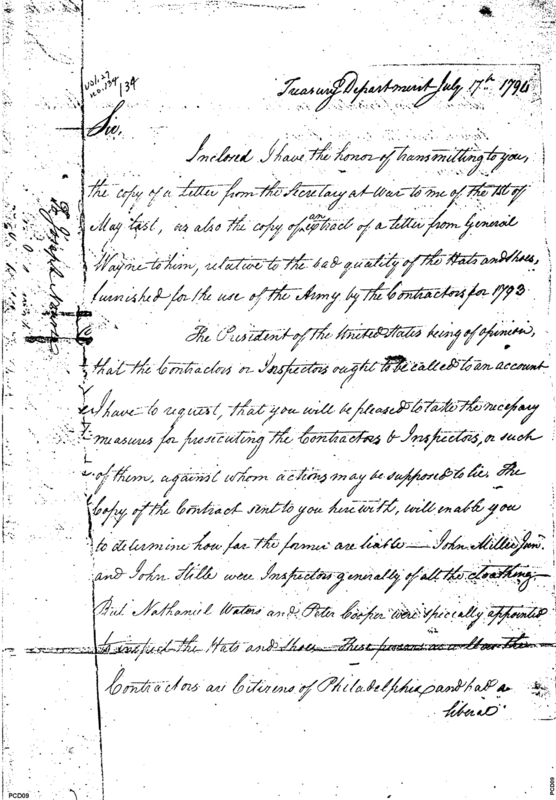 vol. 27
no. 134
134
Treasury Department July 17th 1794
Sir,
Inclosed I have the honor of transmitting to you,
the copy of a letter from the Secretary at War to me of the 1st of
May last, as also the copy of an extract of a letter from General
Wayne to him, relative to the bad quality of the Hats and Shoes,
furnished for the use of the Army by the Contractors for 1793.
The President of the United States being of opinion,
that the Contractors or Inspectors ought to be called to an account
I have to request, that you will be pleased to take the necessary
measures for prosecuting the Contractors & Inspectors, or such
of them, against whom actions may be supposed to lie. The
Copy of the Contract sent to you herewith, will enable you
to determine how far the former are liable — John Miller Junr.
and John Stille were Inspectors generally of all the cloathing
But Nathaniel Waters and Peter Cooper were specially appointed
to inspect the Hats and Shoes — These persons as well as the
Contractors are Citizens of Philadelphia, and had a
liberal
PCD09
PCD09